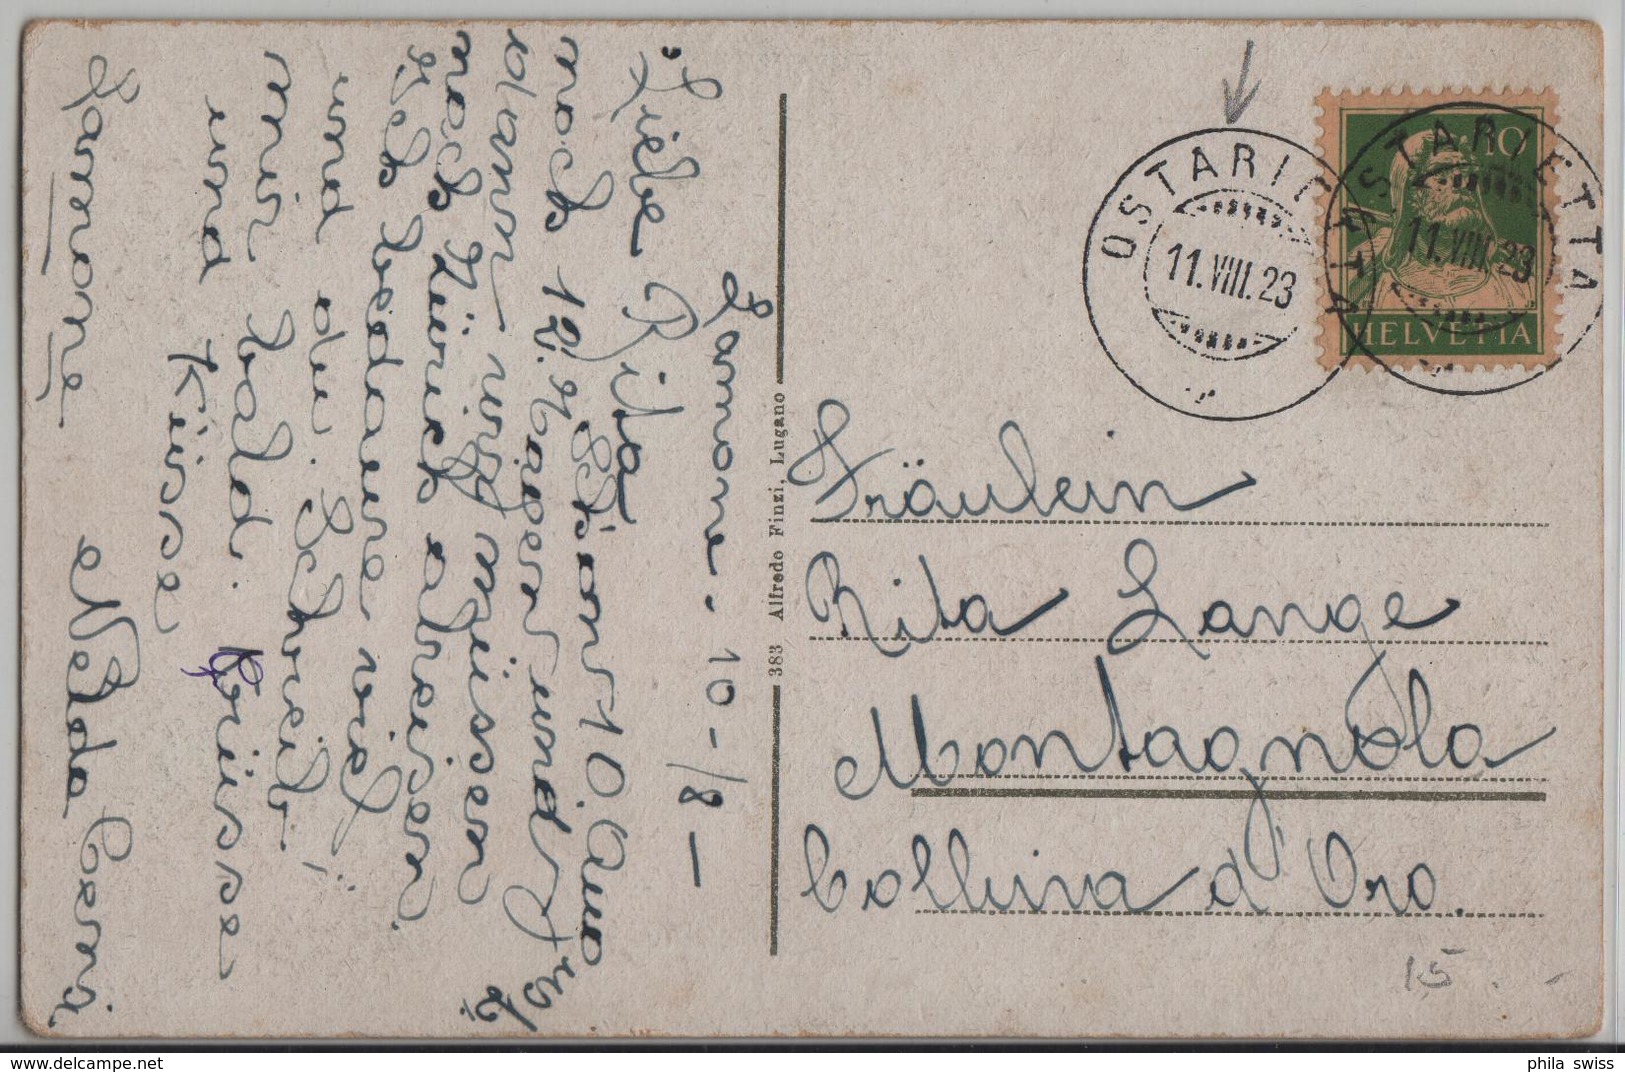 Lamone. 10-/8-
Liebe Rita
noch 12. Tage und
dann müssen
noch Zürich abreisen
Ich bedaure viel
und du. Schreib
mir bald. Grüsse
und Küsse
Nelda Cervi
Lamone
383 Alfredo Finzi, Lugano
OSTARIETTA
11.VIII.23
OSTARIETTA
11.VIII.23
10
HELVETIA
Fräulein
Rita Lange
Montagnola
Collina d'Oro.
15.-
phila_swiss